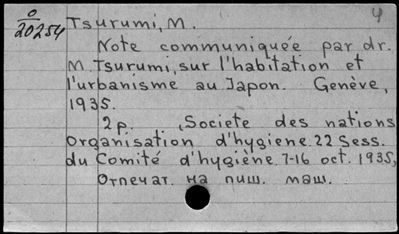 0
20254
Tsurumi, M.
4
Note communiquée par dr.
M. Tsurumi, sur l'habitation et
l'urbanisme au Japon. Genève,
1935.
2 p. , Societe des nations
Organisation d'hygiene. 22 Sess.
du Comité d'hygiène. 7-16 oct. 1935,
Отпечат. на пиш. маш.